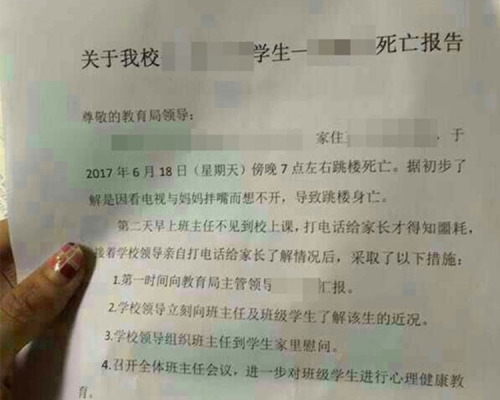 关于我校 学生一 死亡报告
尊敬的教育局领导:
家住 , 于
2017 年 6 月 18 日（星期天）傍晚 7 点左右跳楼死亡。据初步了
解是因看电视与妈妈拌嘴而想不开，导致跳楼身亡。
第二天早上班主任不见到校上课，打电话给家长才得知噩耗，
接着学校领导亲自打电话给家长了解情况后，采取了以下措施：
1.第一时间向教育局主管领导 汇报。
2.学校领导立刻向班主任及班级学生了解该生的近况。
3.学校领导组织班主任到学生家里慰问。
4.召开全体班主任会议，进一步对班级学生进行心理健康教
育。